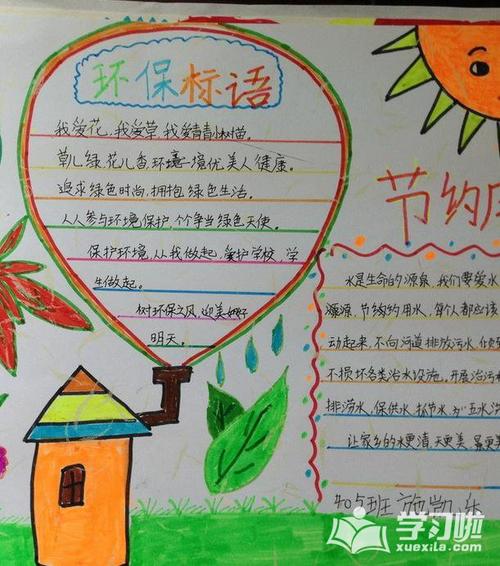 环保标语
我爱花,我爱草,我爱青青小树苗。
草儿绿,花儿香,环境优美人健康。
追求绿色时尚,拥抱绿色生活。
人人参与环境保护,个个争当绿色天使。
保护环境,从我做起,爱护学校,学
生做起。
树环保之风,迎美好
明天。
节约用
水是生命的源泉,我们要爱水
源源,节约用水,每个人都应该
动起来,不向河道排放污水,
不损坏各类治水设施。开展治污
排涝水,保供水,抓节水,为"五水
让家乡的水更清,天更美,
405班
学习啦
xuexila.com